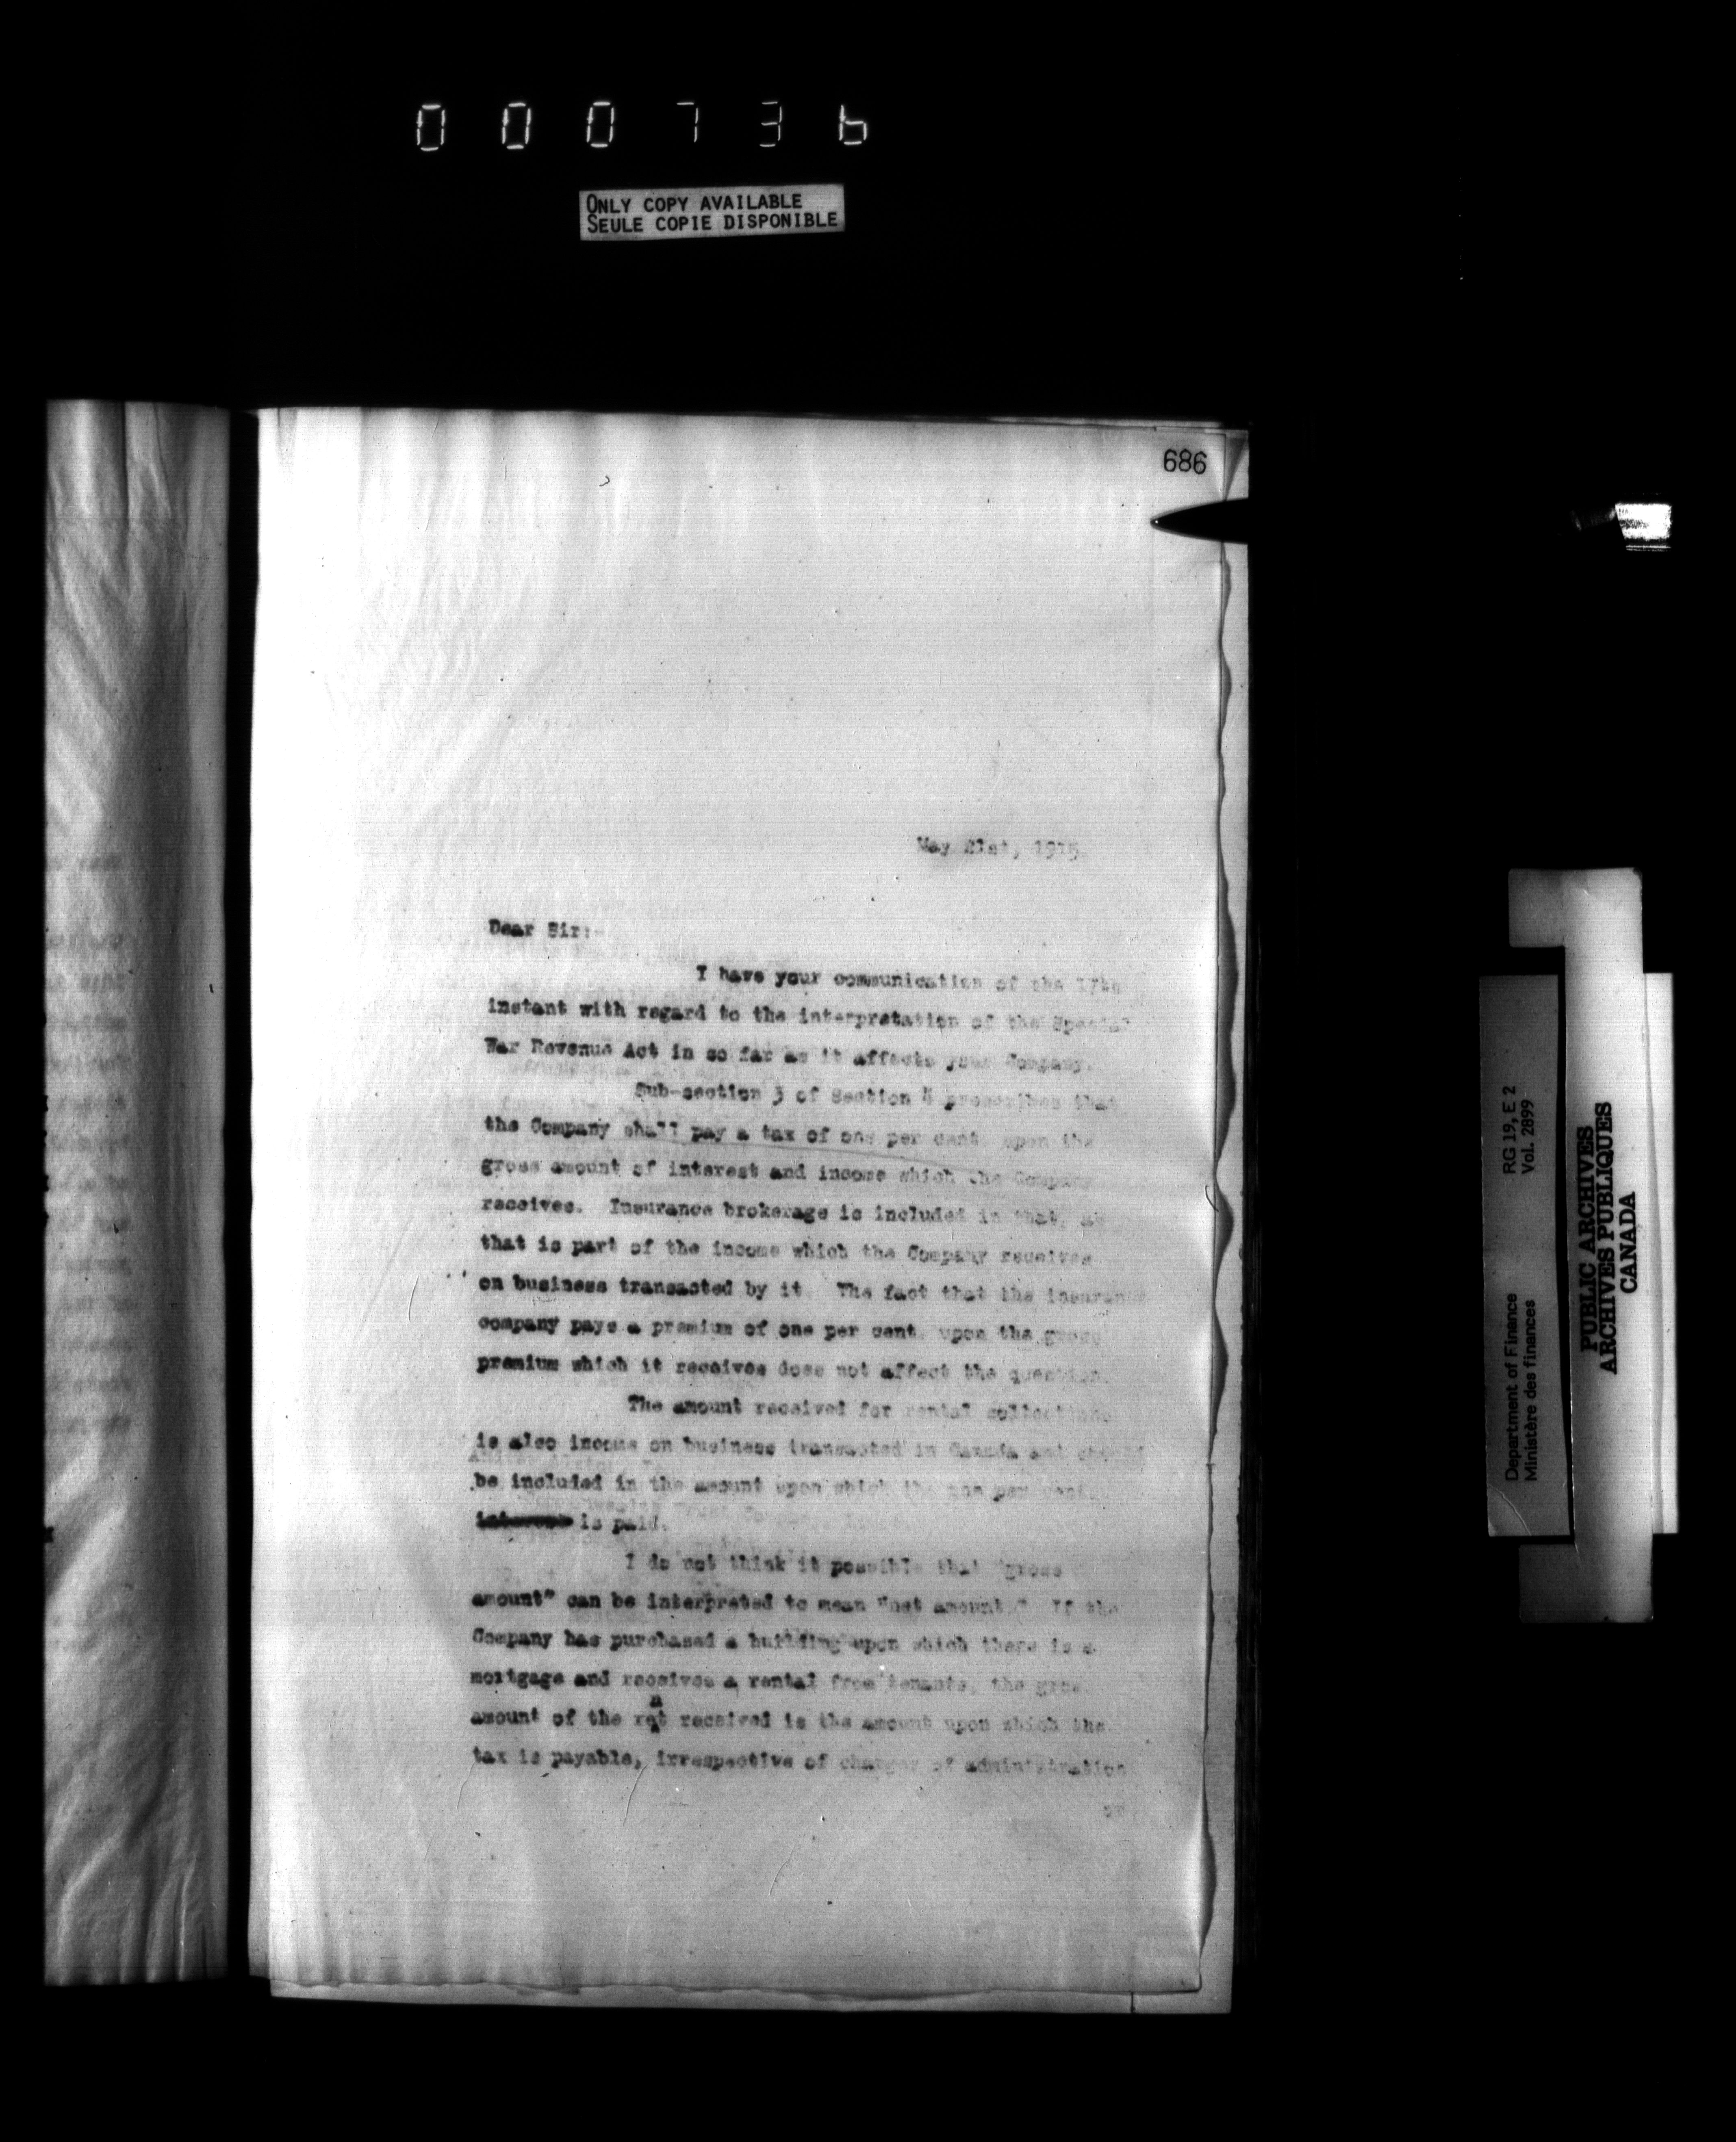 000736
ONLY COPY AVAILABLE
SEULE COPIE DISPONIBLE
686
May 21st, 1915
Dear Sir:-
I have your communication of the 17th
instant with regard to the interpretation of the Special
War Revenue Act in so far as it affects your Company.
Sub-section 3 of Section 4 prescribes that
the Company shall pay a tax of one per cent. upon the
gross amount of interest and income which the Company
receives. Insurance brokerage is included in that, as
that is part of the income which the Company receives
on business transacted by it. The fact that the insurance
company pays a premium of one per cent. upon the gross
premium which it receives does not affect the question.
The amount received for rental collections
is also income on business transacted in Canada and
be included in the amount upon which the one per cent.
is paid.
I do not think it possible that "gross
amount" can be interpreted to mean "net amount." If the
Company has purchased a building upon which there is a
mortgage and receives a rental from tenants, the gross
amount of the rent received is the amount upon which the
tax is payable, irrespective of charges of administration
or
Department of Finance RG 19, E 2
Ministère des finances Vol. 2899
PUBLIC ARCHIVES
ARCHIVES PUBLIQUES
CANADA